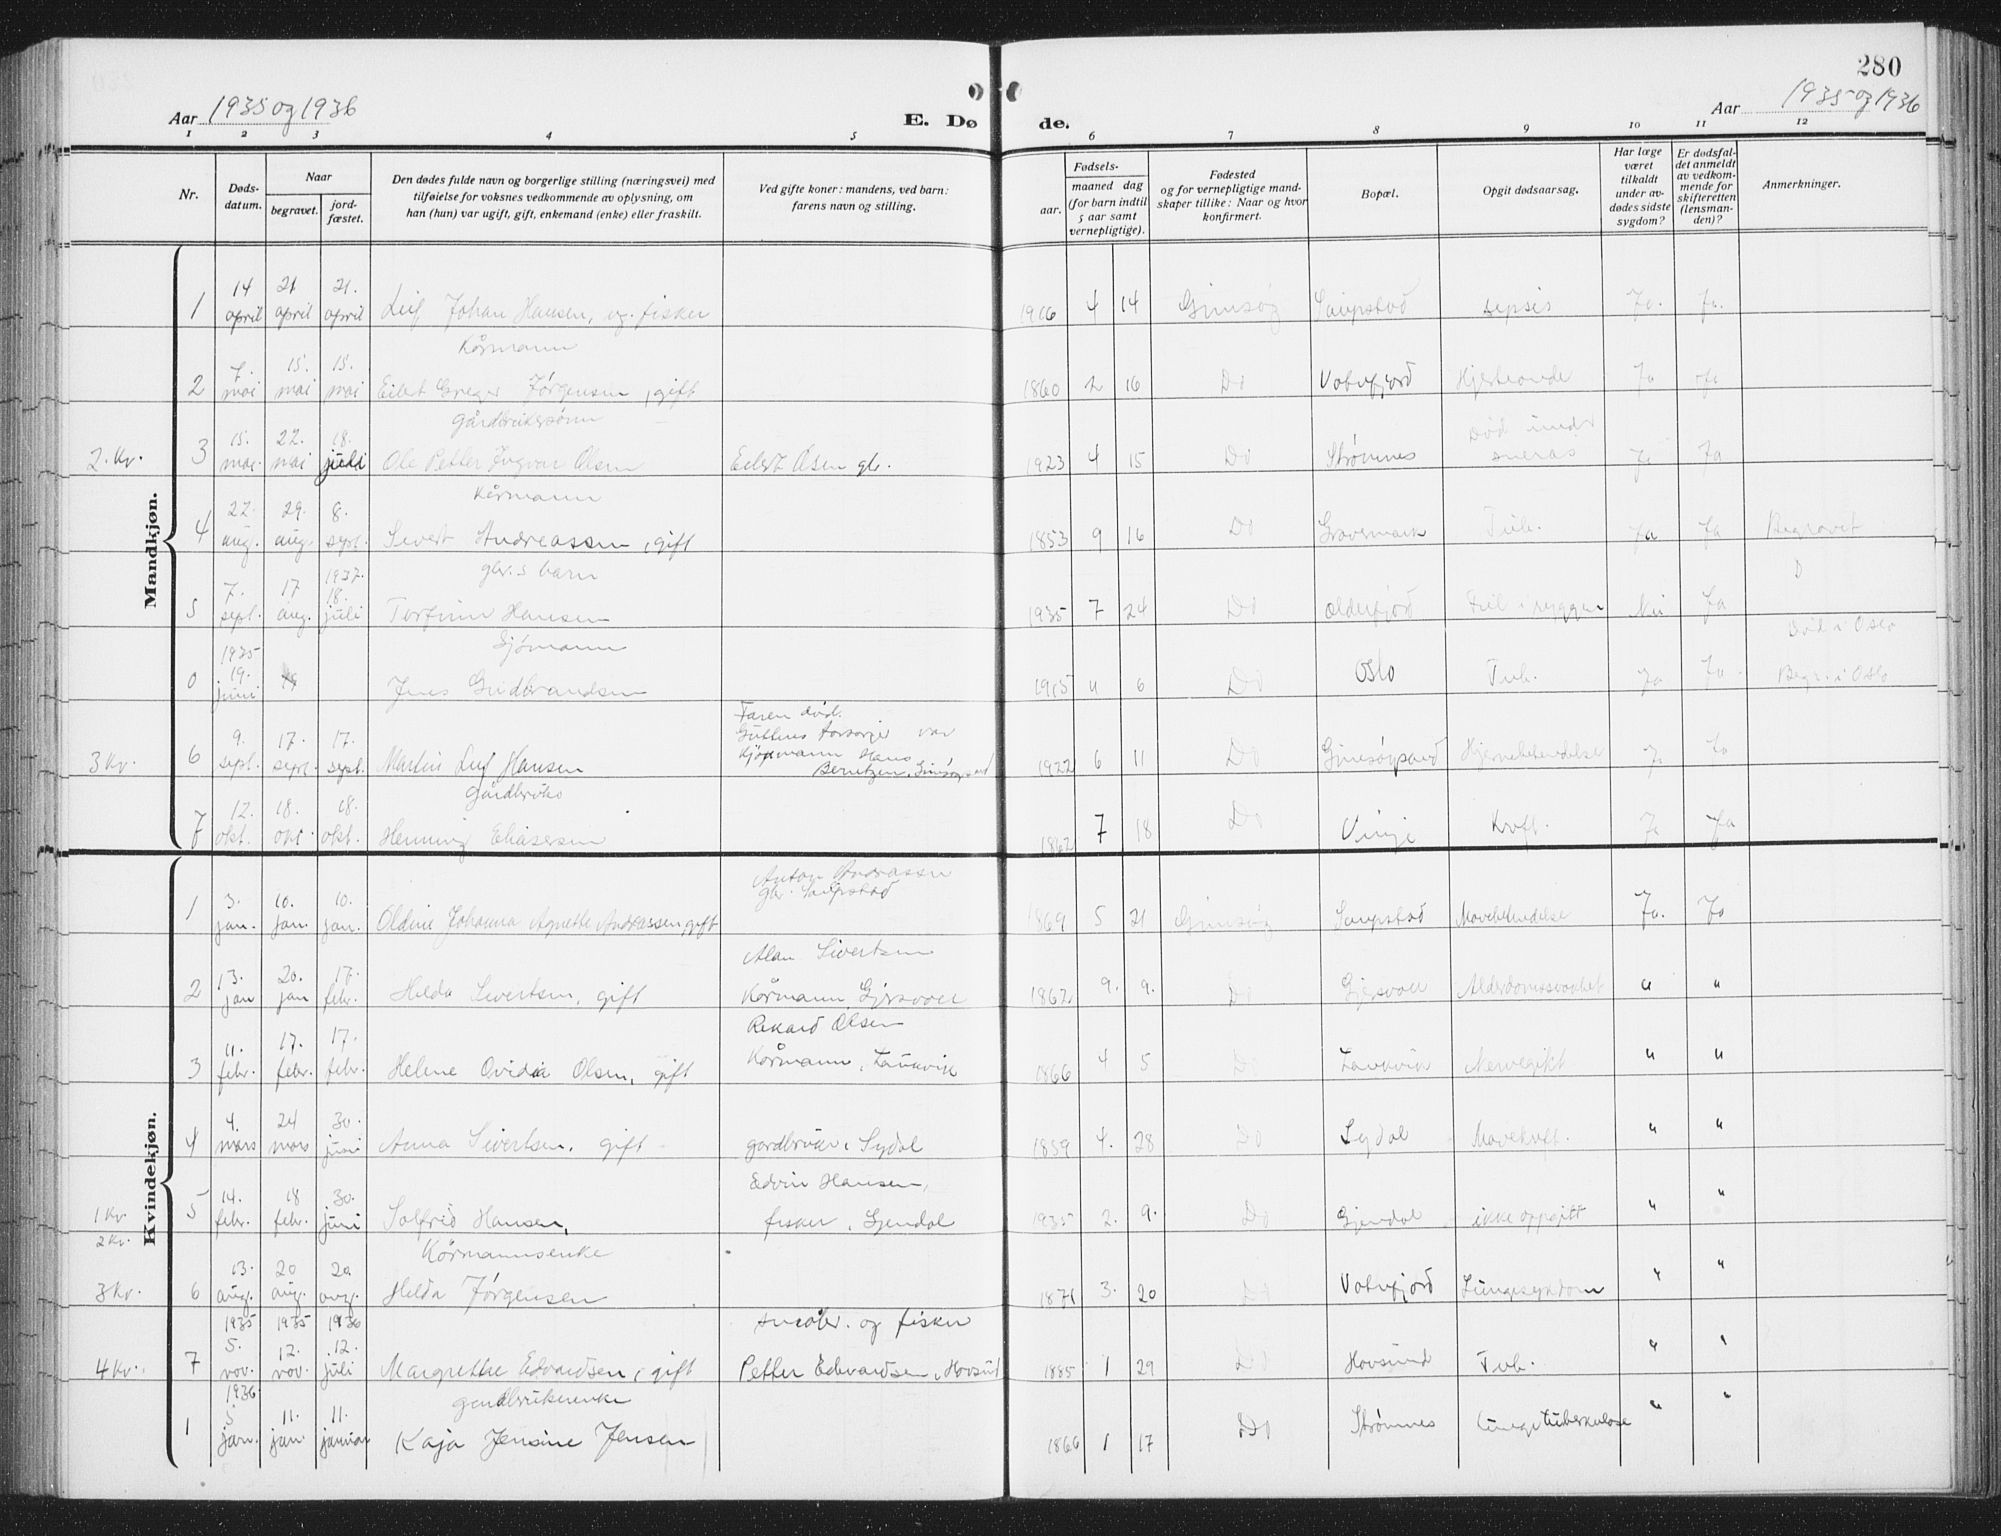 280
Aar 1935 og 1936
E. Døde.
Aar 1935 og 1936
1 2 3 4 5 6 7 8 9 10 11 12
Nr.
Døds-
datum.
Naar
begravet.
jord-
fæstet.
Den dødes fulde navn og borgerlige stilling (næringsvei) med
tilføielse for voksnes vedkommende av oplysning, om
han (hun) var ugift, gift, enkemand (enke) eller fraskilt.
Ved gifte koner: mandens, ved barn:
farens navn og stilling.
Fødsels-
aar.
maaned dag
(for barn indtil
5 aar samt
vernepligtige).
Fødested
og for vernepligtige mand-
skaper tillike: Naar og hvor
konfirmert.
Bopæl.
Opgit dødsaarsag.
Har læge
været
tilkaldt
under av-
dødes sidste
sygdom?
Er dødsfal-
det anmeldt
av vedkom-
mende for
skifteretten
(lensman-
den)?
Anmerkninger.
Mandkjøn.
1 14 april 21 april 21. april Leif Johan Hansen, ug. fisker 1916 4 14 Gimsøy Saupstad sepsis Ja. Ja.
Kårmann
2 7. mai 15. mai 15. mai Eilert Greger Jørgensen, gift 1860 2 16 Do Vatnfjord Hjerteonde Ja Ja
Gårdbrukersønn
2. Kv. 3 15. mai. 22. mai 18. juli Ole Petter Ingvar Olsen Eilert Olsen gb. 1923 4 15 Do Strømnes Død under Ja Ja
Kårmann
4 22. aug. 29. aug. 8. sept. Sivert Andreassen, gift 1853 9 16 Do Tub. Ja Ja Begravet
gbr.s barn
5 7. sept. 17 aug. 1937. 18. juli Torfinn Hansen 1935 7 24 Do Olderfjord i ryggen Nei Ja D
Sjømann
0 1935 19. juni Jens Gudbrandsen 1915 4 6 Do Oslo Tub. Ja Ja. Død i Oslo
Begr. i Oslo
Faren død.
Guttens forsørger var
3 Kv. 6 9. sept. 17. sept. 17. sept. Martin Leif Hansen kjøpmann Hans
Berntzen, Gimsøysand 1922 6 11 Do Gimsøysand Hjernebetendelse Ja Ja
Gårdbruker
7 12. okt. 18. okt. 18. okt. Henning Eliassen 1862 7 18 Do Vinje Kreft. Ja Ja
Kvindekjøn.
Anton Andreassen
gbr. Saupstad
1 3. jan. 10. jan. 10. jan. Oldine Johanna Agnethe Andreassen, gift 1869 5 21 Gimsøy Saupstad Mavebetendelse Ja. Ja
Sivertsen
2 13. jan 20. jan 17. febr. Hilda Sivertsen, gift Kårmann Gjersvoll 1862 9. 9. Do Gjersvoll Alderdomssvakhet " "
Rikard Olsen
3 11. febr. 17. febr. 17. febr. Helene Ovidia Olsen, gift Kårmann, Laukvik 1866 4 5 Do Laukvik Nervegikt " "
4 4. mars 24 mars 30. juni Anna Sivertsen, gift gardbruker, Sydal 1859 4. 28 Do Sydal Mavekreft. " "
Edvin Hansen,
1 Kv. 5 14. febr. 18 febr. 30. juni Solfrid Hansen, fisker, Gjendal 1935 2. 9. Do Gjendal ikke oppgitt " "
2 Kv.
Kårmannsenke
3 Kv. 6 13. aug. 20 aug. 20. aug. Hilda Jørgensen 1871 3. 20 Do Vatnfjord Lungesykdom " "
1935 1935 1936 og fisker
4 Kv. 7 5. nov. 12. nov. 12. juli Margrethe Edvardsen, gift Petter Edvardsen, Hovsund 1885 1 29 Do Hovsund Tub. " "
1936 gardbrukerenke
1 5 jan. 11. jan. 11. januar Kaja Jensine Jensen 1866 1 17 Do Strømnes Lungetuberkulose " "